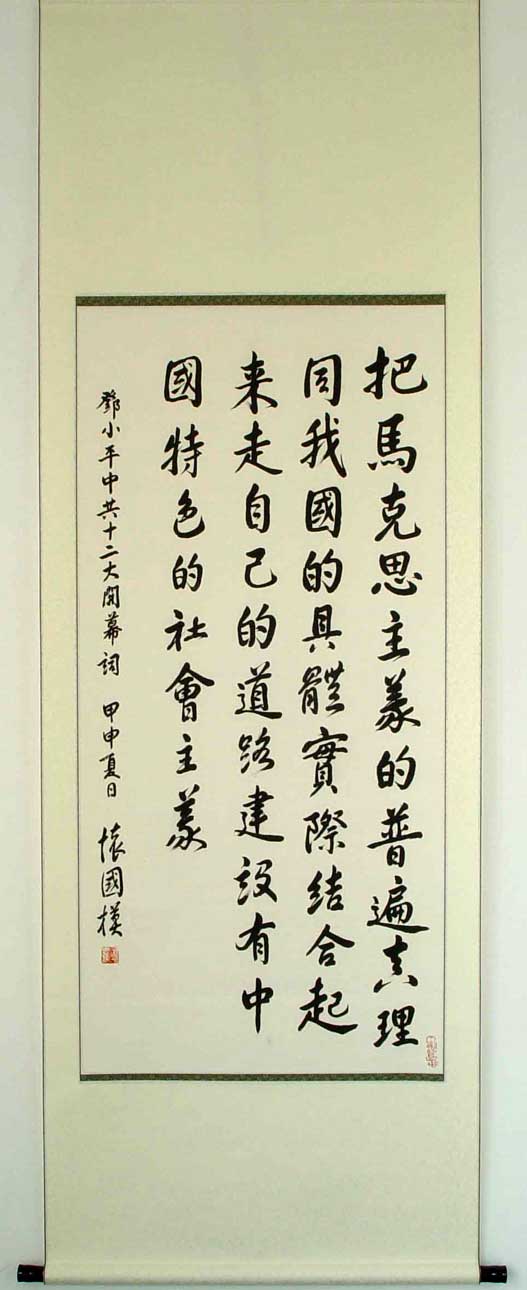 把馬克思主義的普遍真理
同我國的具體實際結合起
来走自己的道路建設有中
國特色的社會主義
鄧小平中共十二大開幕詞 甲申夏日 懷國模